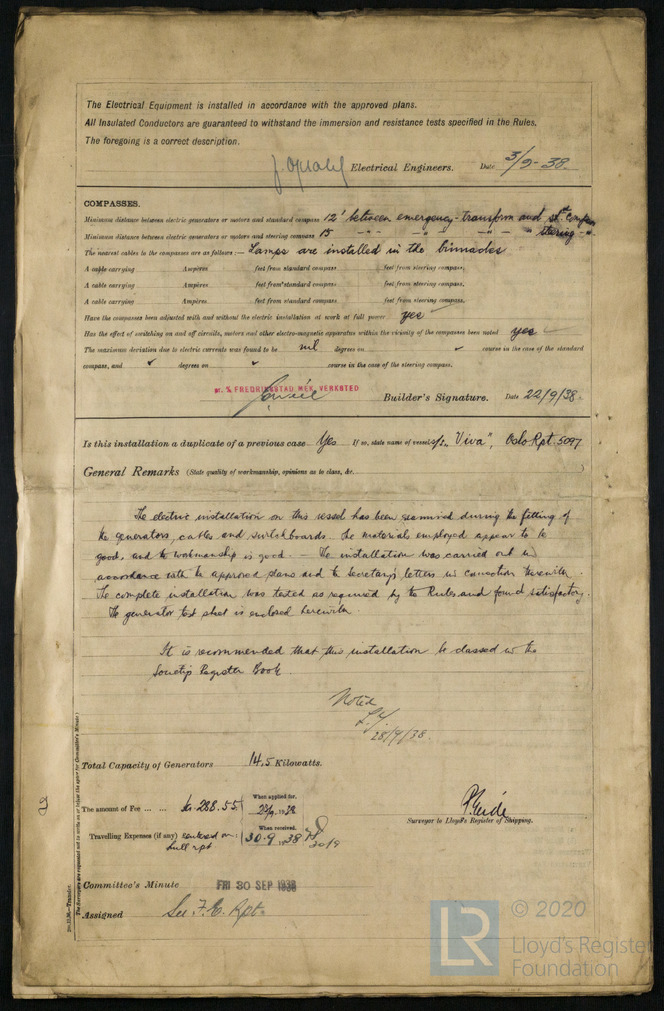 The Electrical Equipment is installed in accordance with the approved plans.
All Insulated Conductors are guaranteed to withstand the immersion and resistance tests specified in the Rules.
The foregoing is a correct description.
Electrical Engineers. Date 3/9-38.
COMPASSES.
Minimum distance between electric generators or motors and standard compass 12' between emergency-transform and st. compass
Minimum distance between electric generators or motors and steering compass 15 -"- -"- -"- -"- steering -"-
The nearest cables to the compasses are as follows:— Lamps are installed in the binnacles
A cable carrying Ampères feet from standard compass feet from steering compass.
A cable carrying Ampères feet from standard compass feet from steering compass.
A cable carrying Ampères feet from standard compass feet from steering compass.
Have the compasses been adjusted with and without the electric installation at work at full power yes
Has the effect of switching on and off circuits, motors and other electro-magnetic apparatus within the vicinity of the compasses been noted yes
The maximum deviation due to electric currents was found to be nil degrees on course in the case of the standard
compass, and degrees on course in the case of the steering compass.
pr. % FREDRIKSTAD MEK. VERKSTED
Builder's Signature. Date 22/9/38
Is this installation a duplicate of a previous case Yes If so, state name of vessel "Viva", Oslo Rpt 5097
General Remarks (State quality of workmanship, opinions as to class, &c.
The electric installation on this vessel has been examined during the fitting of
the generators, cables and switchboards. The materials employed appear to be
good, and the workmanship is good. — The installation was carried out in
accordance with the approved plans and the Secretary's letters in connection therewith.
The complete installation was tested as required by the Rules and found satisfactory.
The generator test sheet is enclosed herewith.
It is recommended that this installation be classed in the
Society's Register Book.
Noted
28/9/38
Total Capacity of Generators 14,5 Kilowatts.
The amount of Fee ... ... kr. 288.55 When applied for,
Travelling Expenses (if any) entered on When received,
hull rpt 30.9.1938 30/9
Surveyor to Lloyd's Register of Shipping.
Committee's Minute FRI 30 SEP 1938
Assigned See F.E. Rpt.
The Surveyors are requested not to write on or below the space for Committee's Minute.
© 2020
LR
Lloyd's Register
Foundation